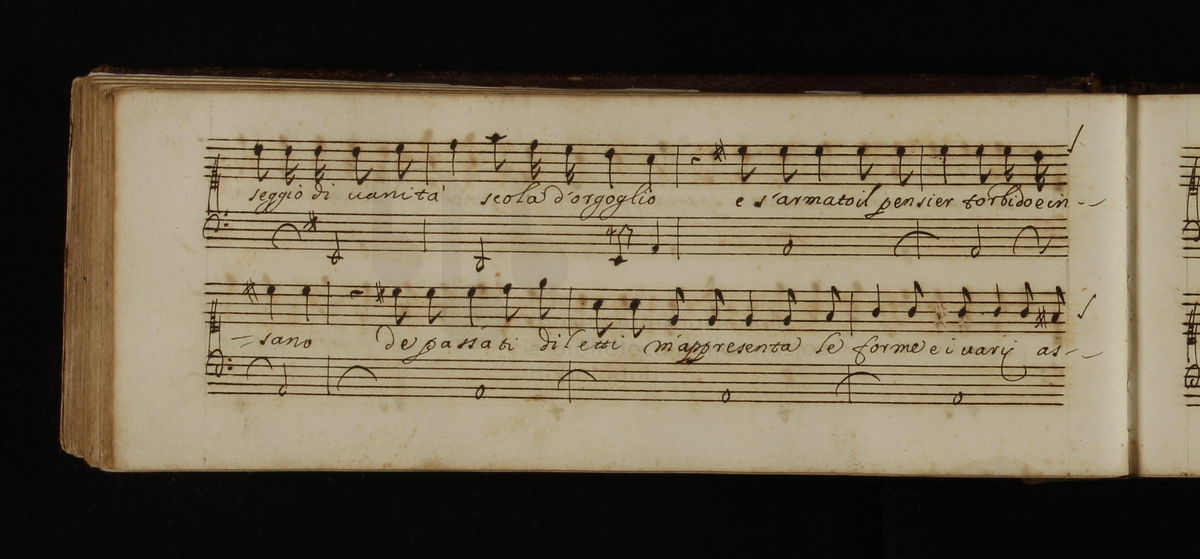 seggio di vanità scola d'orgoglio e s'armato il pensier torbido e in-
=sano de passati diletti m'appresenta le forme e i varij as-